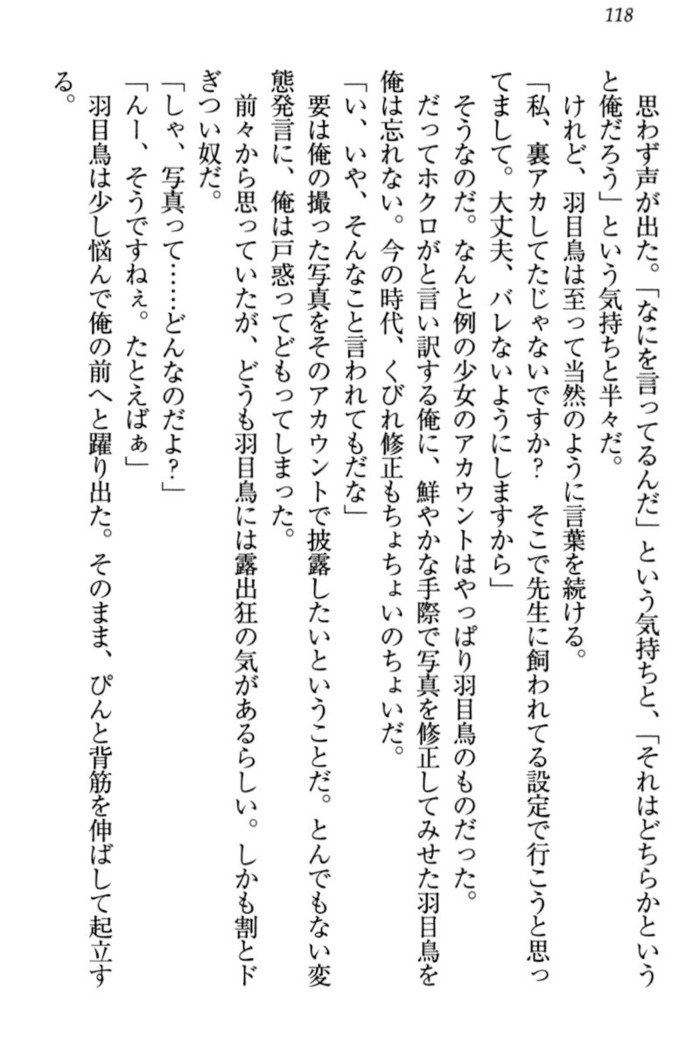 118
思わず声が出た。「なにを言ってるんだ」という気持ちと、「それはどちらかという
と俺だろう」という気持ちと半々だ。
けれど、羽目鳥は至って当然のように言葉を続ける。
「私、裏アカしてたじゃないですか？　そこで先生に飼われてる設定で行こうと思っ
てまして。大丈夫、バレないようにしますから」
そうなのだ。なんと例の少女のアカウントはやっぱり羽目鳥のものだった。
だってホクロがと言い訳する俺に、鮮やかな手際で写真を修正してみせた羽目鳥を
俺は忘れない。今の時代、くびれ修正もちょちょいのちょいだ。
「い、いや、そんなこと言われてもだな」
要は俺の撮った写真をそのアカウントで披露したいということだ。とんでもない変
態発言に、俺は戸惑ってどもってしまった。
前々から思っていたが、どうも羽目鳥には露出狂の気があるらしい。しかも割とド
ぎつい奴だ。
「しゃ、写真って……どんなのだよ？」
「んー、そうですねぇ。たとえばぁ」
羽目鳥は少し悩んで俺の前へと躍り出た。そのまま、ぴんと背筋を伸ばして起立す
る。